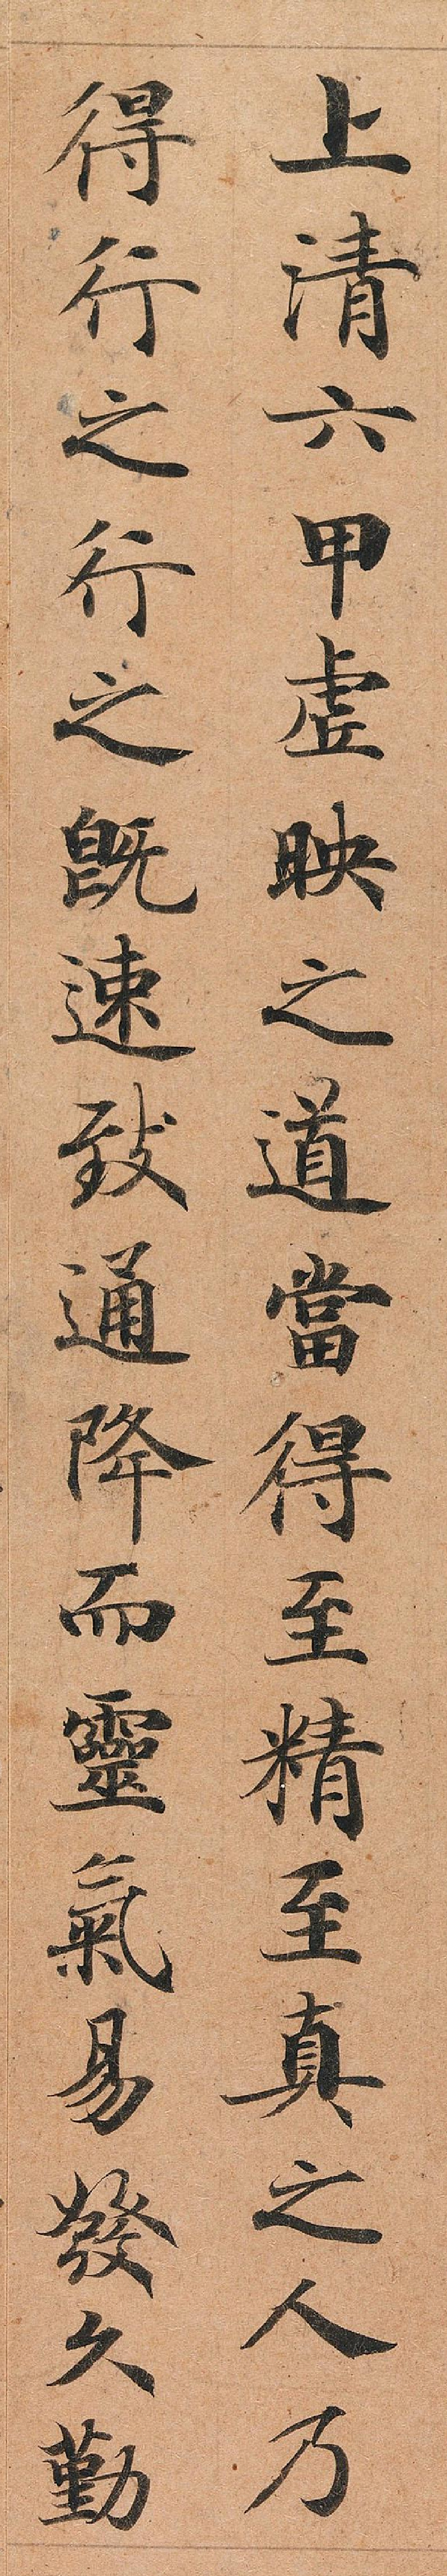 上清六甲虛映之道當得至精至真之人乃
得行之行之既速致通降而靈氣易發久勤